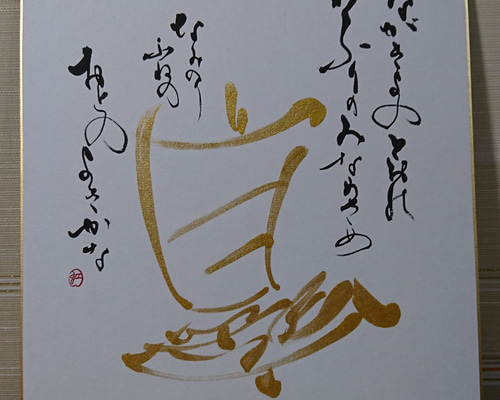 ながきよのとをの
ねぶりのみなめさめ
なみのり
ふねの
おとのよきかな